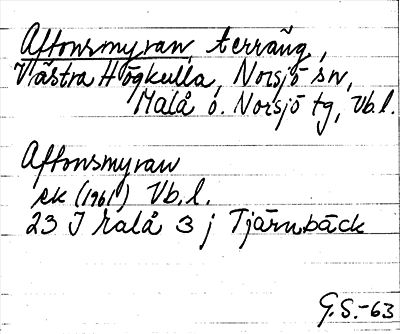 Aftonsmyran, terräng,
Västra Högkulla, Norsjö sn,
Malå o. Norsjö tg, Vb.l.
Aftonsmyran
ek (1961) Vb.l.
23 J Malå 3 j Tjärnbäck
G.S.-63